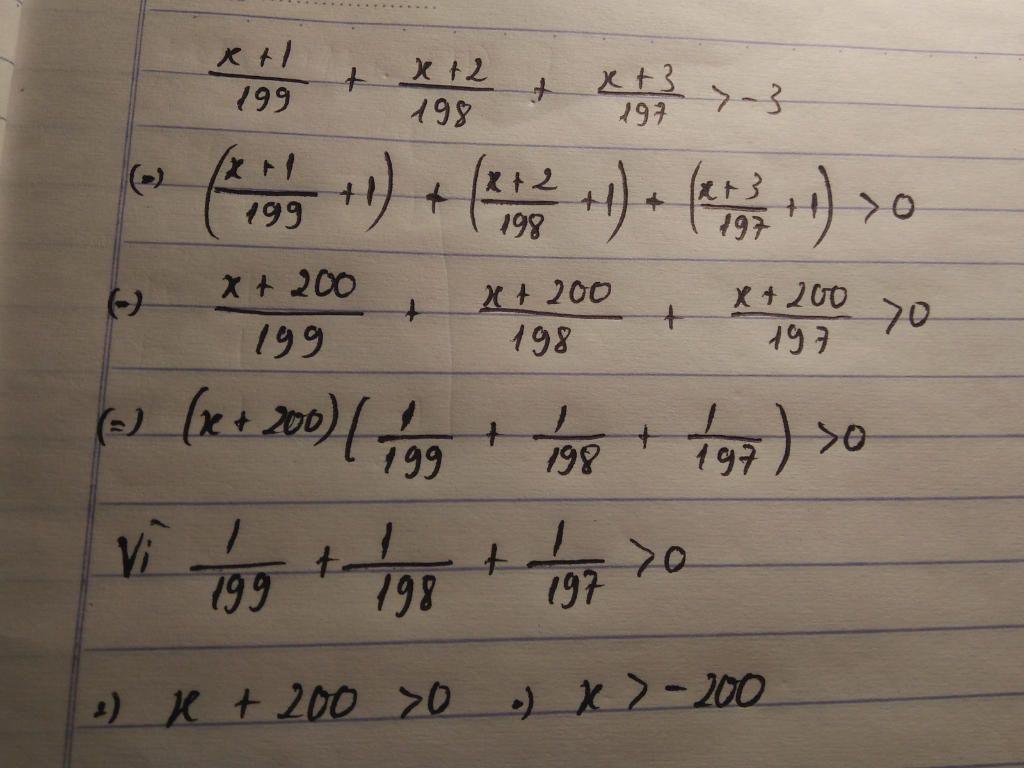 (x+1)/199 + (x+2)/198 + (x+3)/197 > -3
(=) ((x+1)/199 + 1) + ((x+2)/198 + 1) + ((x+3)/197 + 1) > 0
(=) (x+200)/199 + (x+200)/198 + (x+200)/197 > 0
(=) (x+200)(1/199 + 1/198 + 1/197) > 0
Vì 1/199 + 1/198 + 1/197 > 0
=) x + 200 > 0 =) x > -200